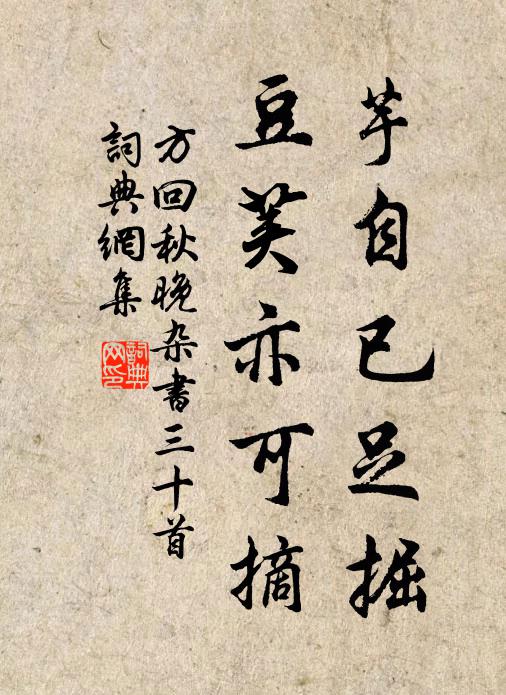 芋自已足掘
豆荚亦可摘
方回秋晚杂書三十首
詞典網集
詞典網印